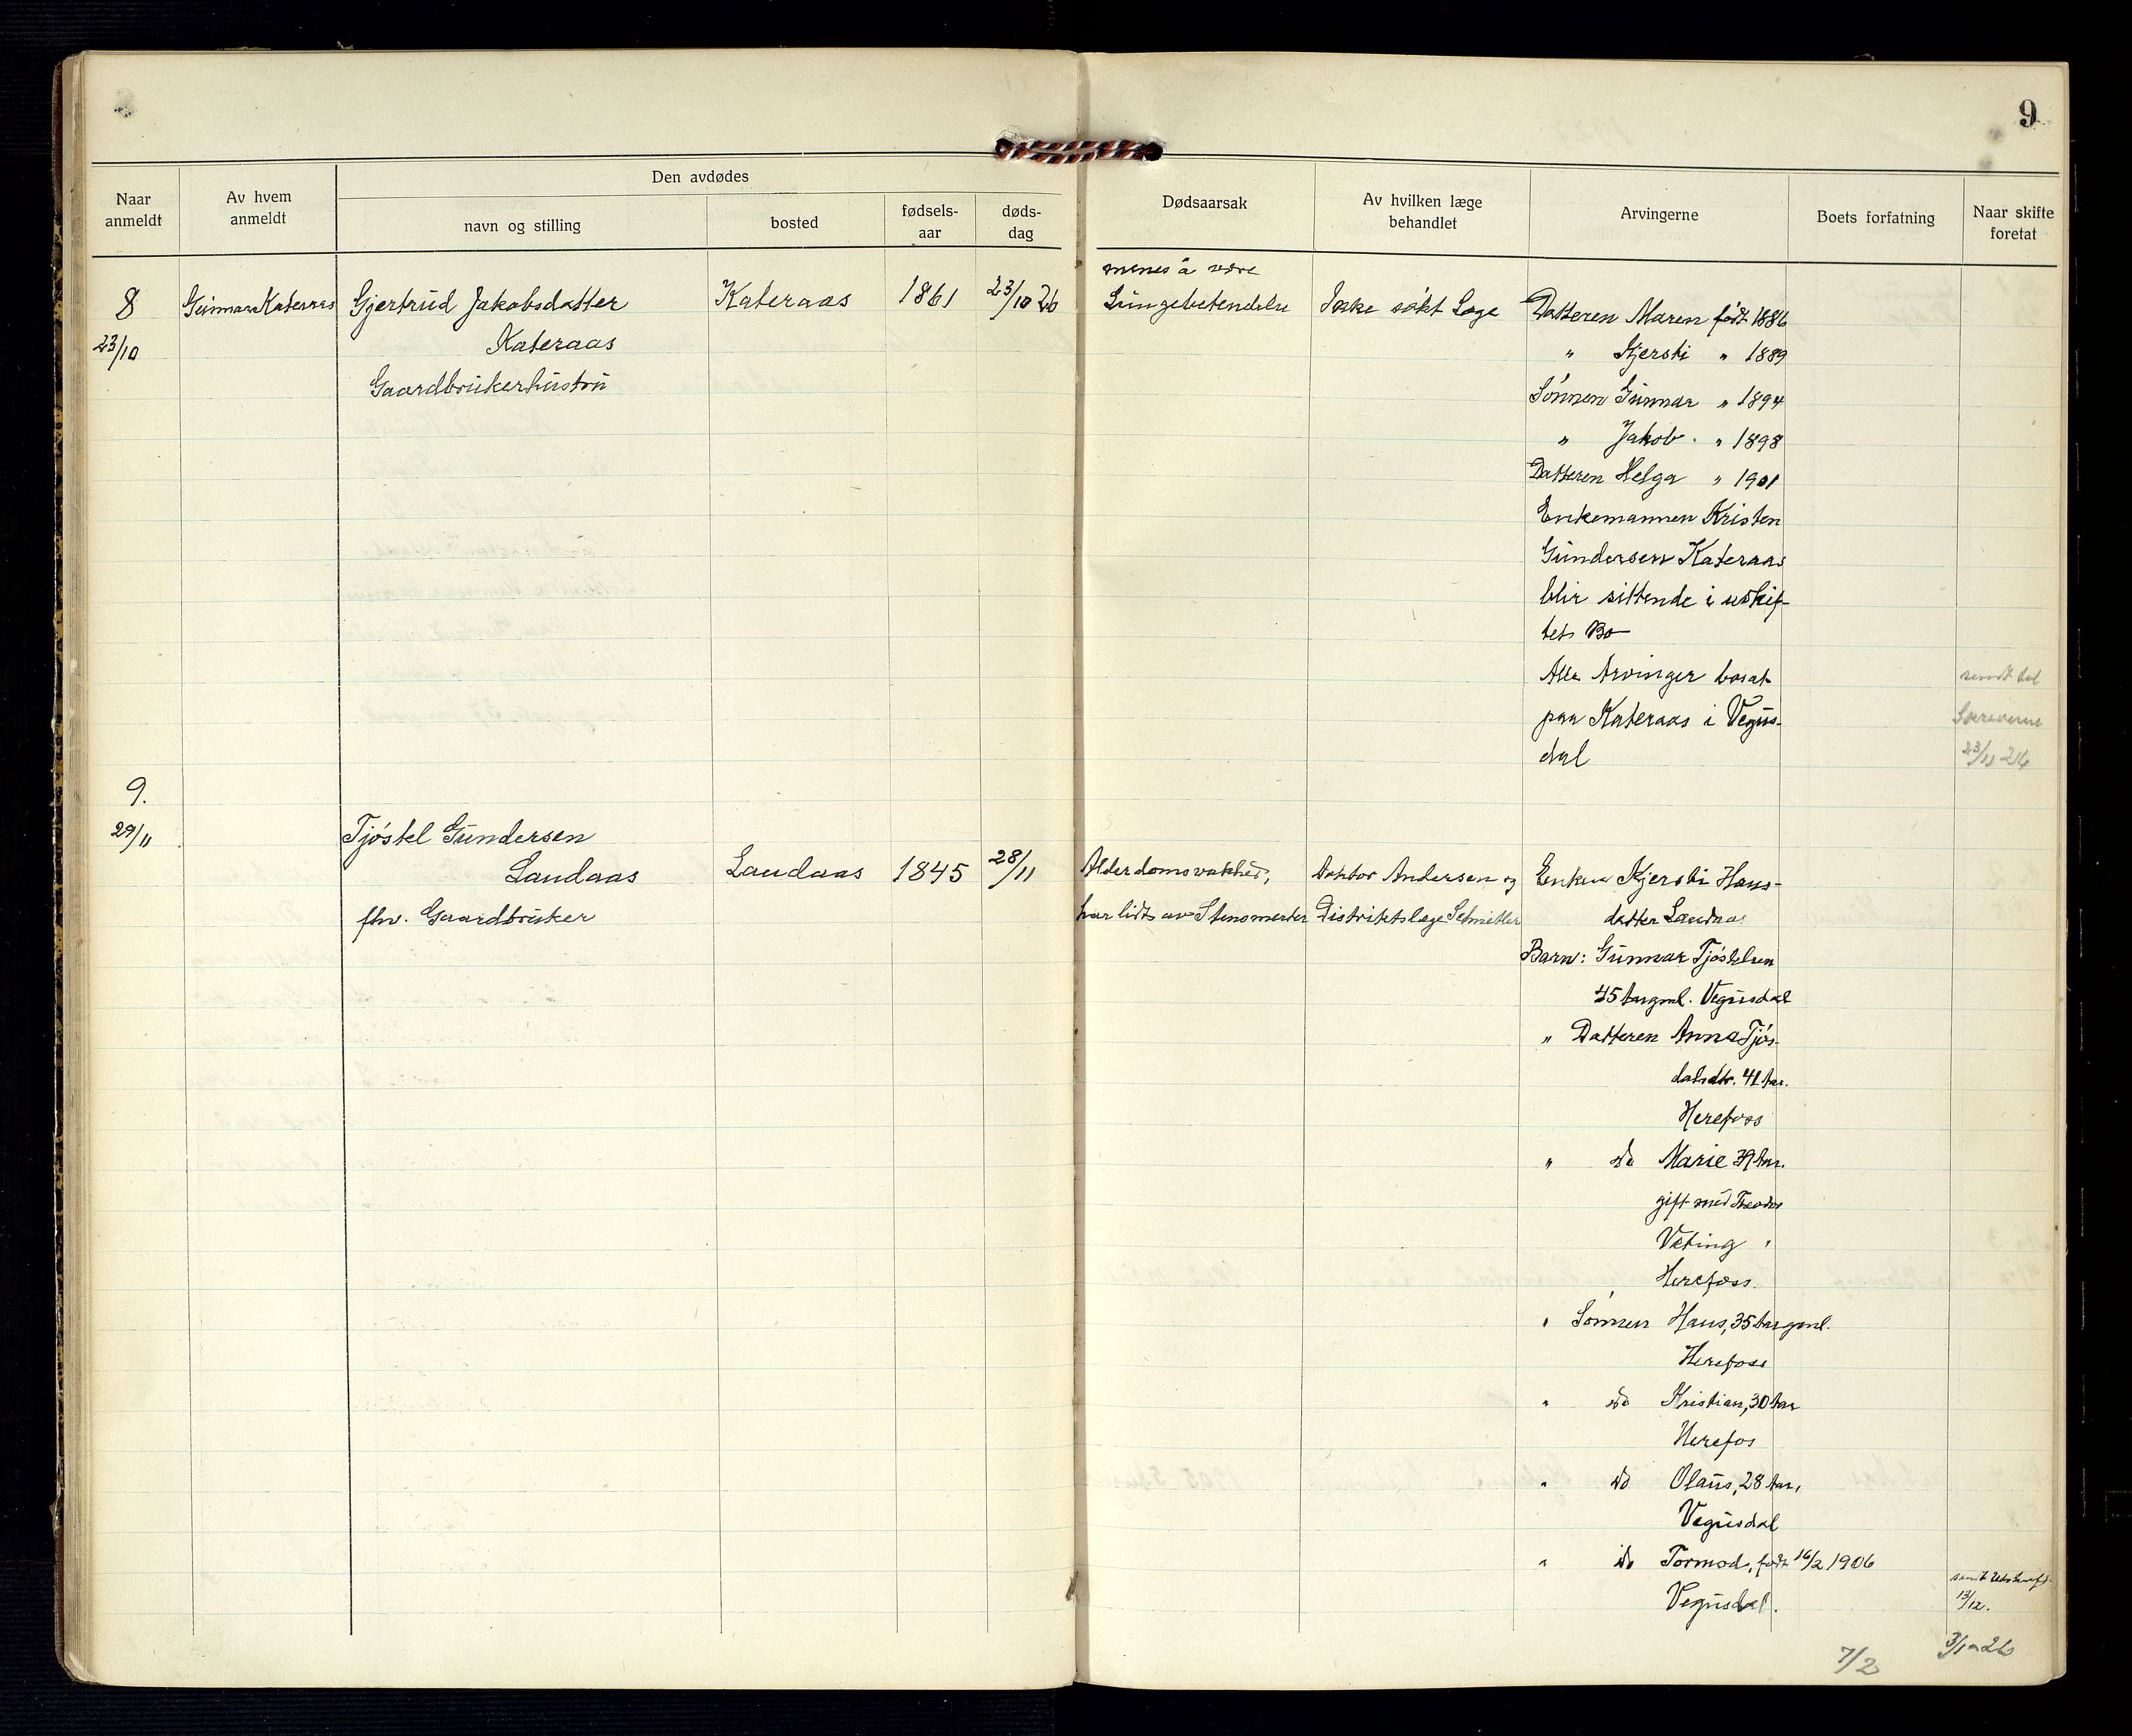 9
Naar anmeldt
Av hvem anmeldt
Den avdødes
navn og stilling
bosted
fødsels-aar
døds-dag
Dødsaarsak
Av hvilken læge behandlet
Arvingerne
Boets forfatning
Naar skifte foretat
8
23/10
Gunnar Kateraas
Gjertrud Jakobsdatter
Kateraas
Gaardbrukerhustru
Kateraas
1861
23/10 26
menes å være
Lungebetendelse
Ikke søkt Læge
Datteren Maren født 1886
" Kjersti " 1889
Sønnen Gunnar " 1894
" Jakob. " 1898
Datteren Helga " 1901
Enkemannen Kristen
Gundersen Kateraas
blir sittende i uskif-
tet Bo
Alle Arvinger bosat
paa Kateraas i Vegus-
dal
sendt til
23/11 26
9.
29/11
Tjøstel Gundersen
Landaas
fhv. Gaardbruker
Landaas
1845
28/11
Alderdomsvakhed,
har lidt av Stensmerter
Doktor Andersen og
Distriktslæge Schmidler
Enken Kjersti Hans-
datter Landaas
Barn: Gunnar Tjøstelsen
45 Aar gml. Vegusdal
" Datteren Anna Tjøs-
delsdtr. 41 Aar.
Herefoss
" do Marie 39 Aar.
gift med Theodor
Veting
Herefoss.
" Sønnen Hans, 35 Aar gml.
Herefoss
" do Kristian, 30 Aar
Herefos
" do Olaus, 28 Aar,
Vegusdal
" do Tormod, født 16/2 1906
Vegusdal.
sendt Utskrift
13/12.
7/2